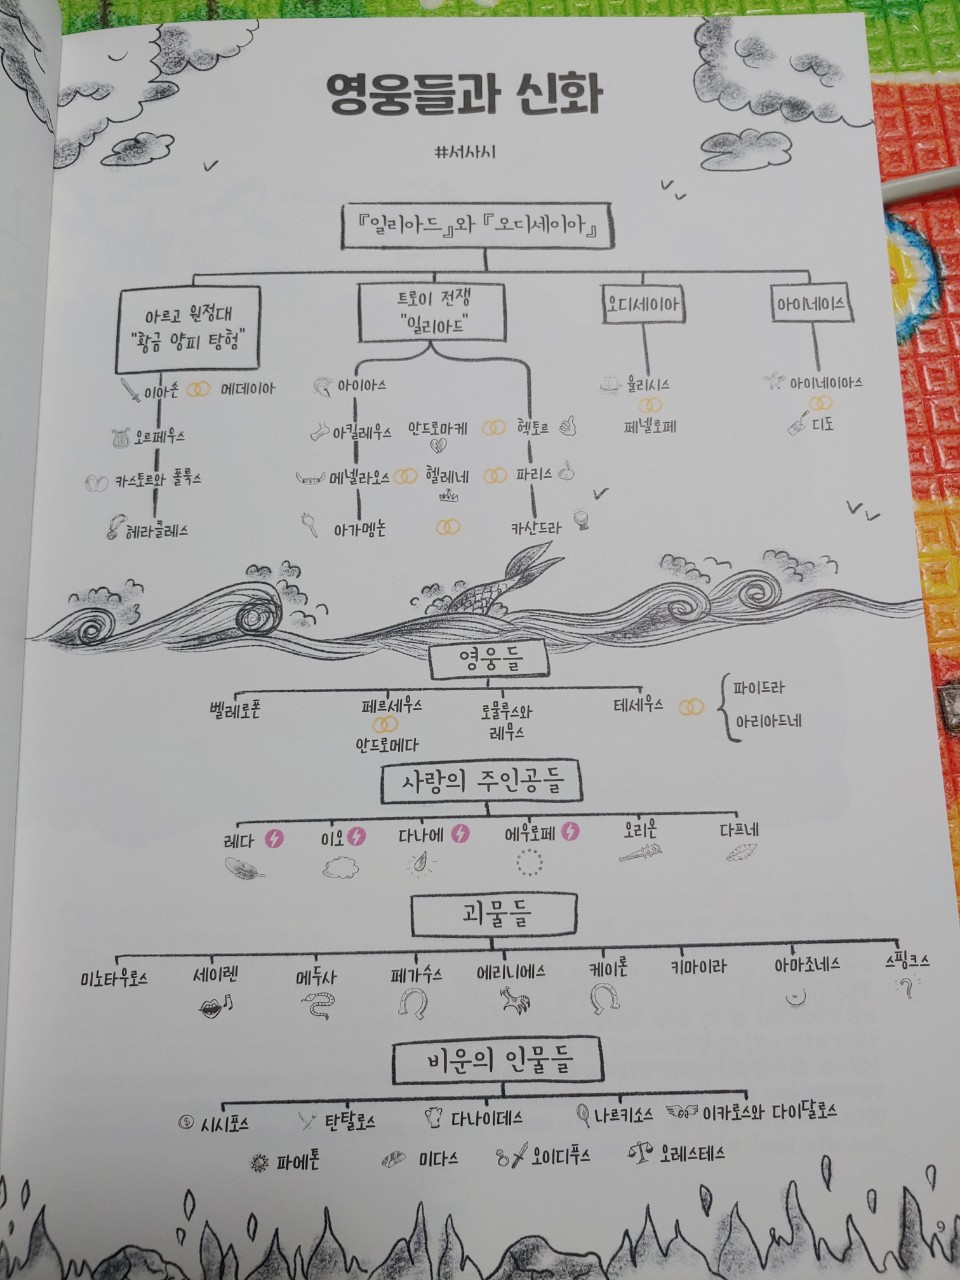 영웅들과 신화
#서사시
『일리아드』와 『오디세이아』
아르고 원정대
"황금 양피 탐험"
이아손 메데이아
오르페우스
카스토르와 폴룩스
헤라클레스
트로이 전쟁
"일리아드"
아이아스
아킬레우스 안드로마케 헥토르
메넬라오스 헬레네 파리스
아가멤논 카산드라
오디세이아
율리시스
페넬로페
아이네이스
아이네이아스
디도
영웅들
벨레로폰
페르세우스
안드로메다
로물루스와
레무스
테세우스
파이드라
아리아드네
사랑의 주인공들
레다 이오 다나에 에우로페 오리온 다프네
괴물들
미노타우로스 세이렌 메두사 페가수스 에리니에스 케이론 키마이라 아마조네스 스핑크스
비운의 인물들
시시포스 탄탈로스 다나이데스 나르키소스 이카로스와 다이달로스
파에톤 미다스 오이디푸스 오레스테스
9